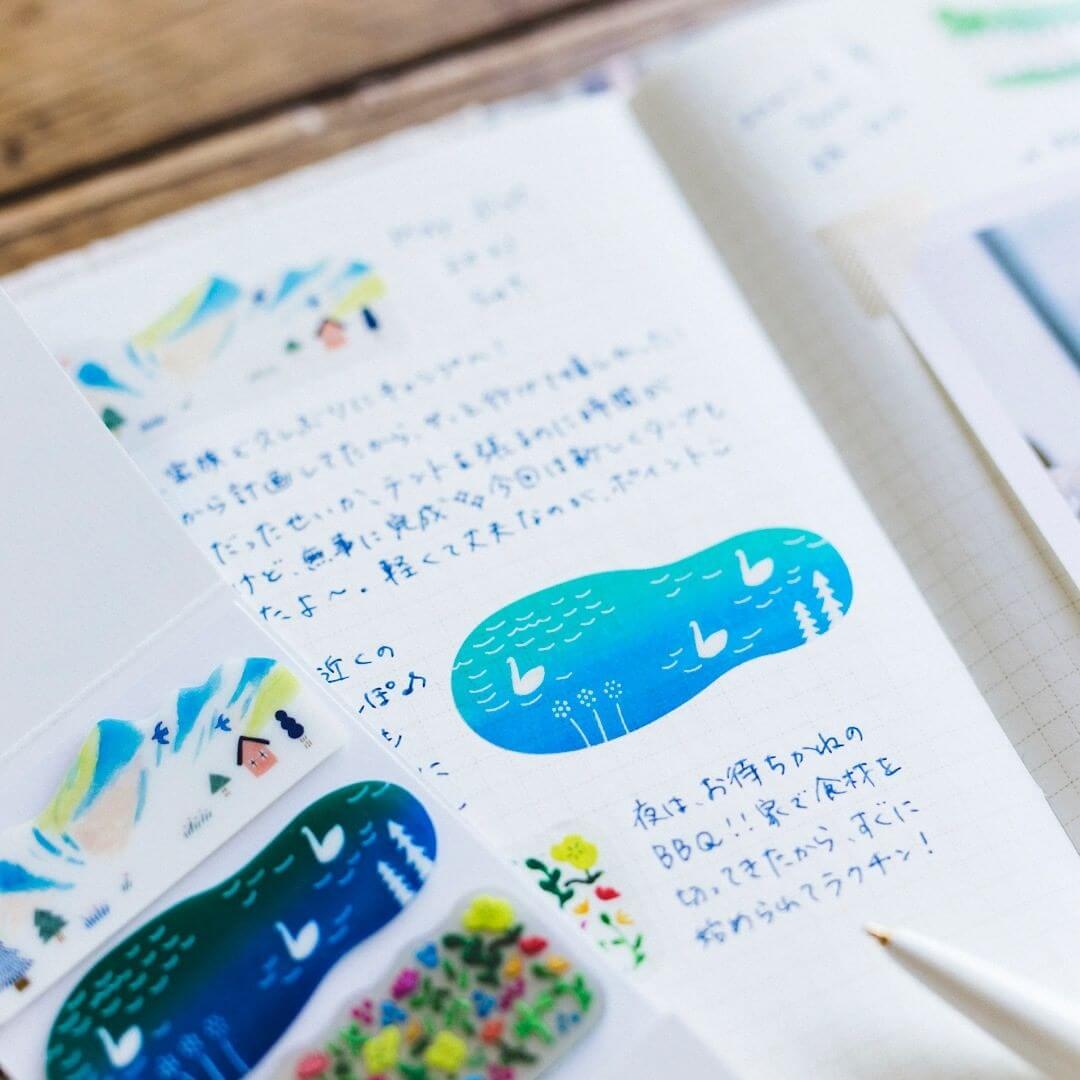 家族で久しぶりにキャンプへ!
から計画してたから、やっと行けて嬉しかった!
だったせいか、テントを張るのに時間が
けど、無事に完成 今回は新しくタープも
たよ〜。軽くて丈夫なのが、ポイント
近くの
っぽ♪
も
に
夜は、お待ちかねの
BBQ!!家で食材を
切ってきたから、すぐに
始められてラクチン!